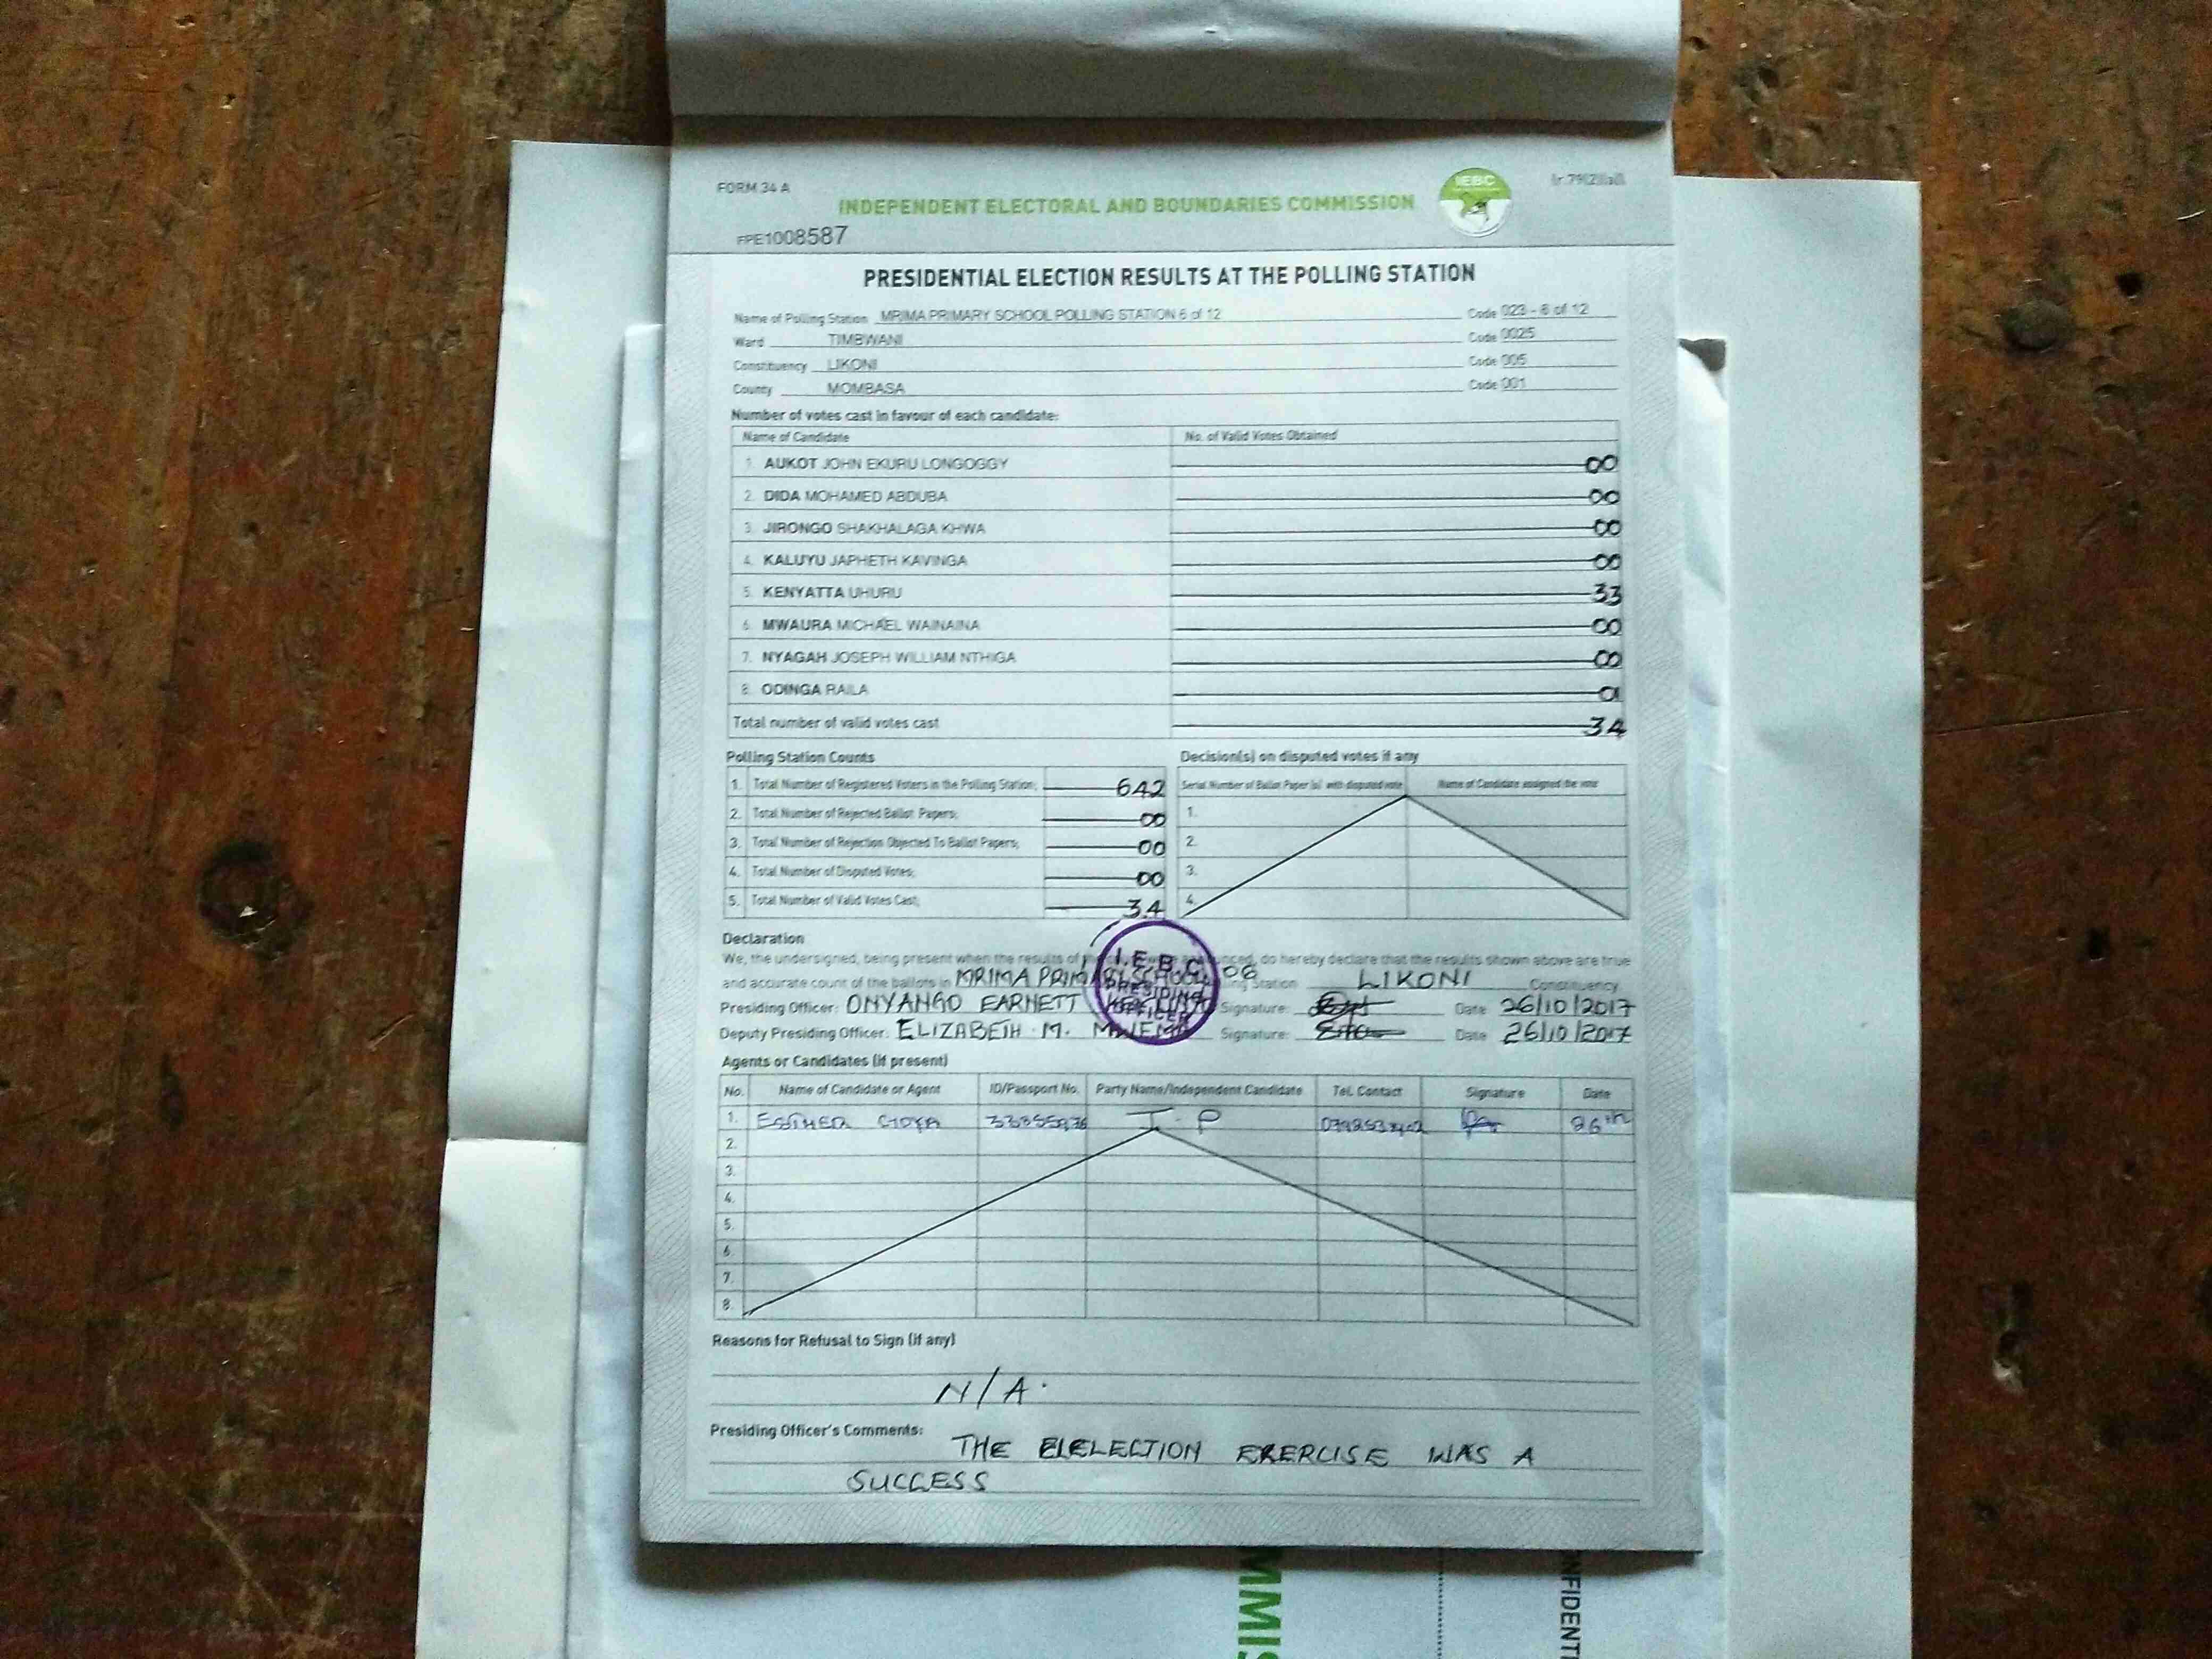 FORM 34 A
INDEPENDENT ELECTORAL AND BOUNDARIES COMMISSION
IEBC
(r.79(2)(a))
FPE1008587
PRESIDENTIAL ELECTION RESULTS AT THE POLLING STATION
Name of Polling Station MRIMA PRIMARY SCHOOL POLLING STATION 6 of 12 Code 023 - 6 of 12
Ward TIMBWANI Code 0025
Constituency LIKONI Code 005
County MOMBASA Code 001
Number of votes cast in favour of each candidate:
Name of Candidate No. of Valid Votes Obtained
1. AUKOT JOHN EKURU LONGOGGY 00
2. DIDA MOHAMED ABDUBA 00
3. JIRONGO SHAKHALAGA KHWA 00
4. KALUYU JAPHETH KAVINGA 00
5. KENYATTA UHURU 33
6. MWAURA MICHAEL WAINAINA 00
7. NYAGAH JOSEPH WILLIAM NTHIGA 00
8. ODINGA RAILA 01
Total number of valid votes cast 34
Polling Station Counts
1. Total Number of Registered Voters in the Polling Station; 642
2. Total Number of Rejected Ballot Papers; 00
3. Total Number of Rejection Objected To Ballot Papers; 00
4. Total Number of Disputed Votes; 00
5. Total Number of Valid Votes Cast; 34
Decision(s) on disputed votes if any
Serial Number of Ballot Paper (s) with disputed vote Name of Candidate assigned the vote
1.
2.
3.
4.
Declaration
We, the undersigned, being present when the results of the announced, do hereby declare that the results shown above are true
and accurate count of the ballots in MRIMA PRIMARY SCHOOL 06 Polling Station LIKONI Constituency
I.E.B.C
PRESIDING
OFFICER
Presiding Officer: ONYANGO EARNETT Signature: Date 26/10/2017
Deputy Presiding Officer: ELIZABETH M. Signature: Date 26/10/2017
Agents or Candidates (if present)
No. Name of Candidate or Agent ID/Passport No. Party Name/Independent Candidate Tel. Contact Signature Date
1. ESTHER J.P 26th
2.
3.
4.
5.
6.
7.
8.
Reasons for Refusal to Sign (if any)
N/A.
Presiding Officer's Comments: THE ELELECTION EXERCISE WAS A
SUCCESS
MMIS
NFIDENTI